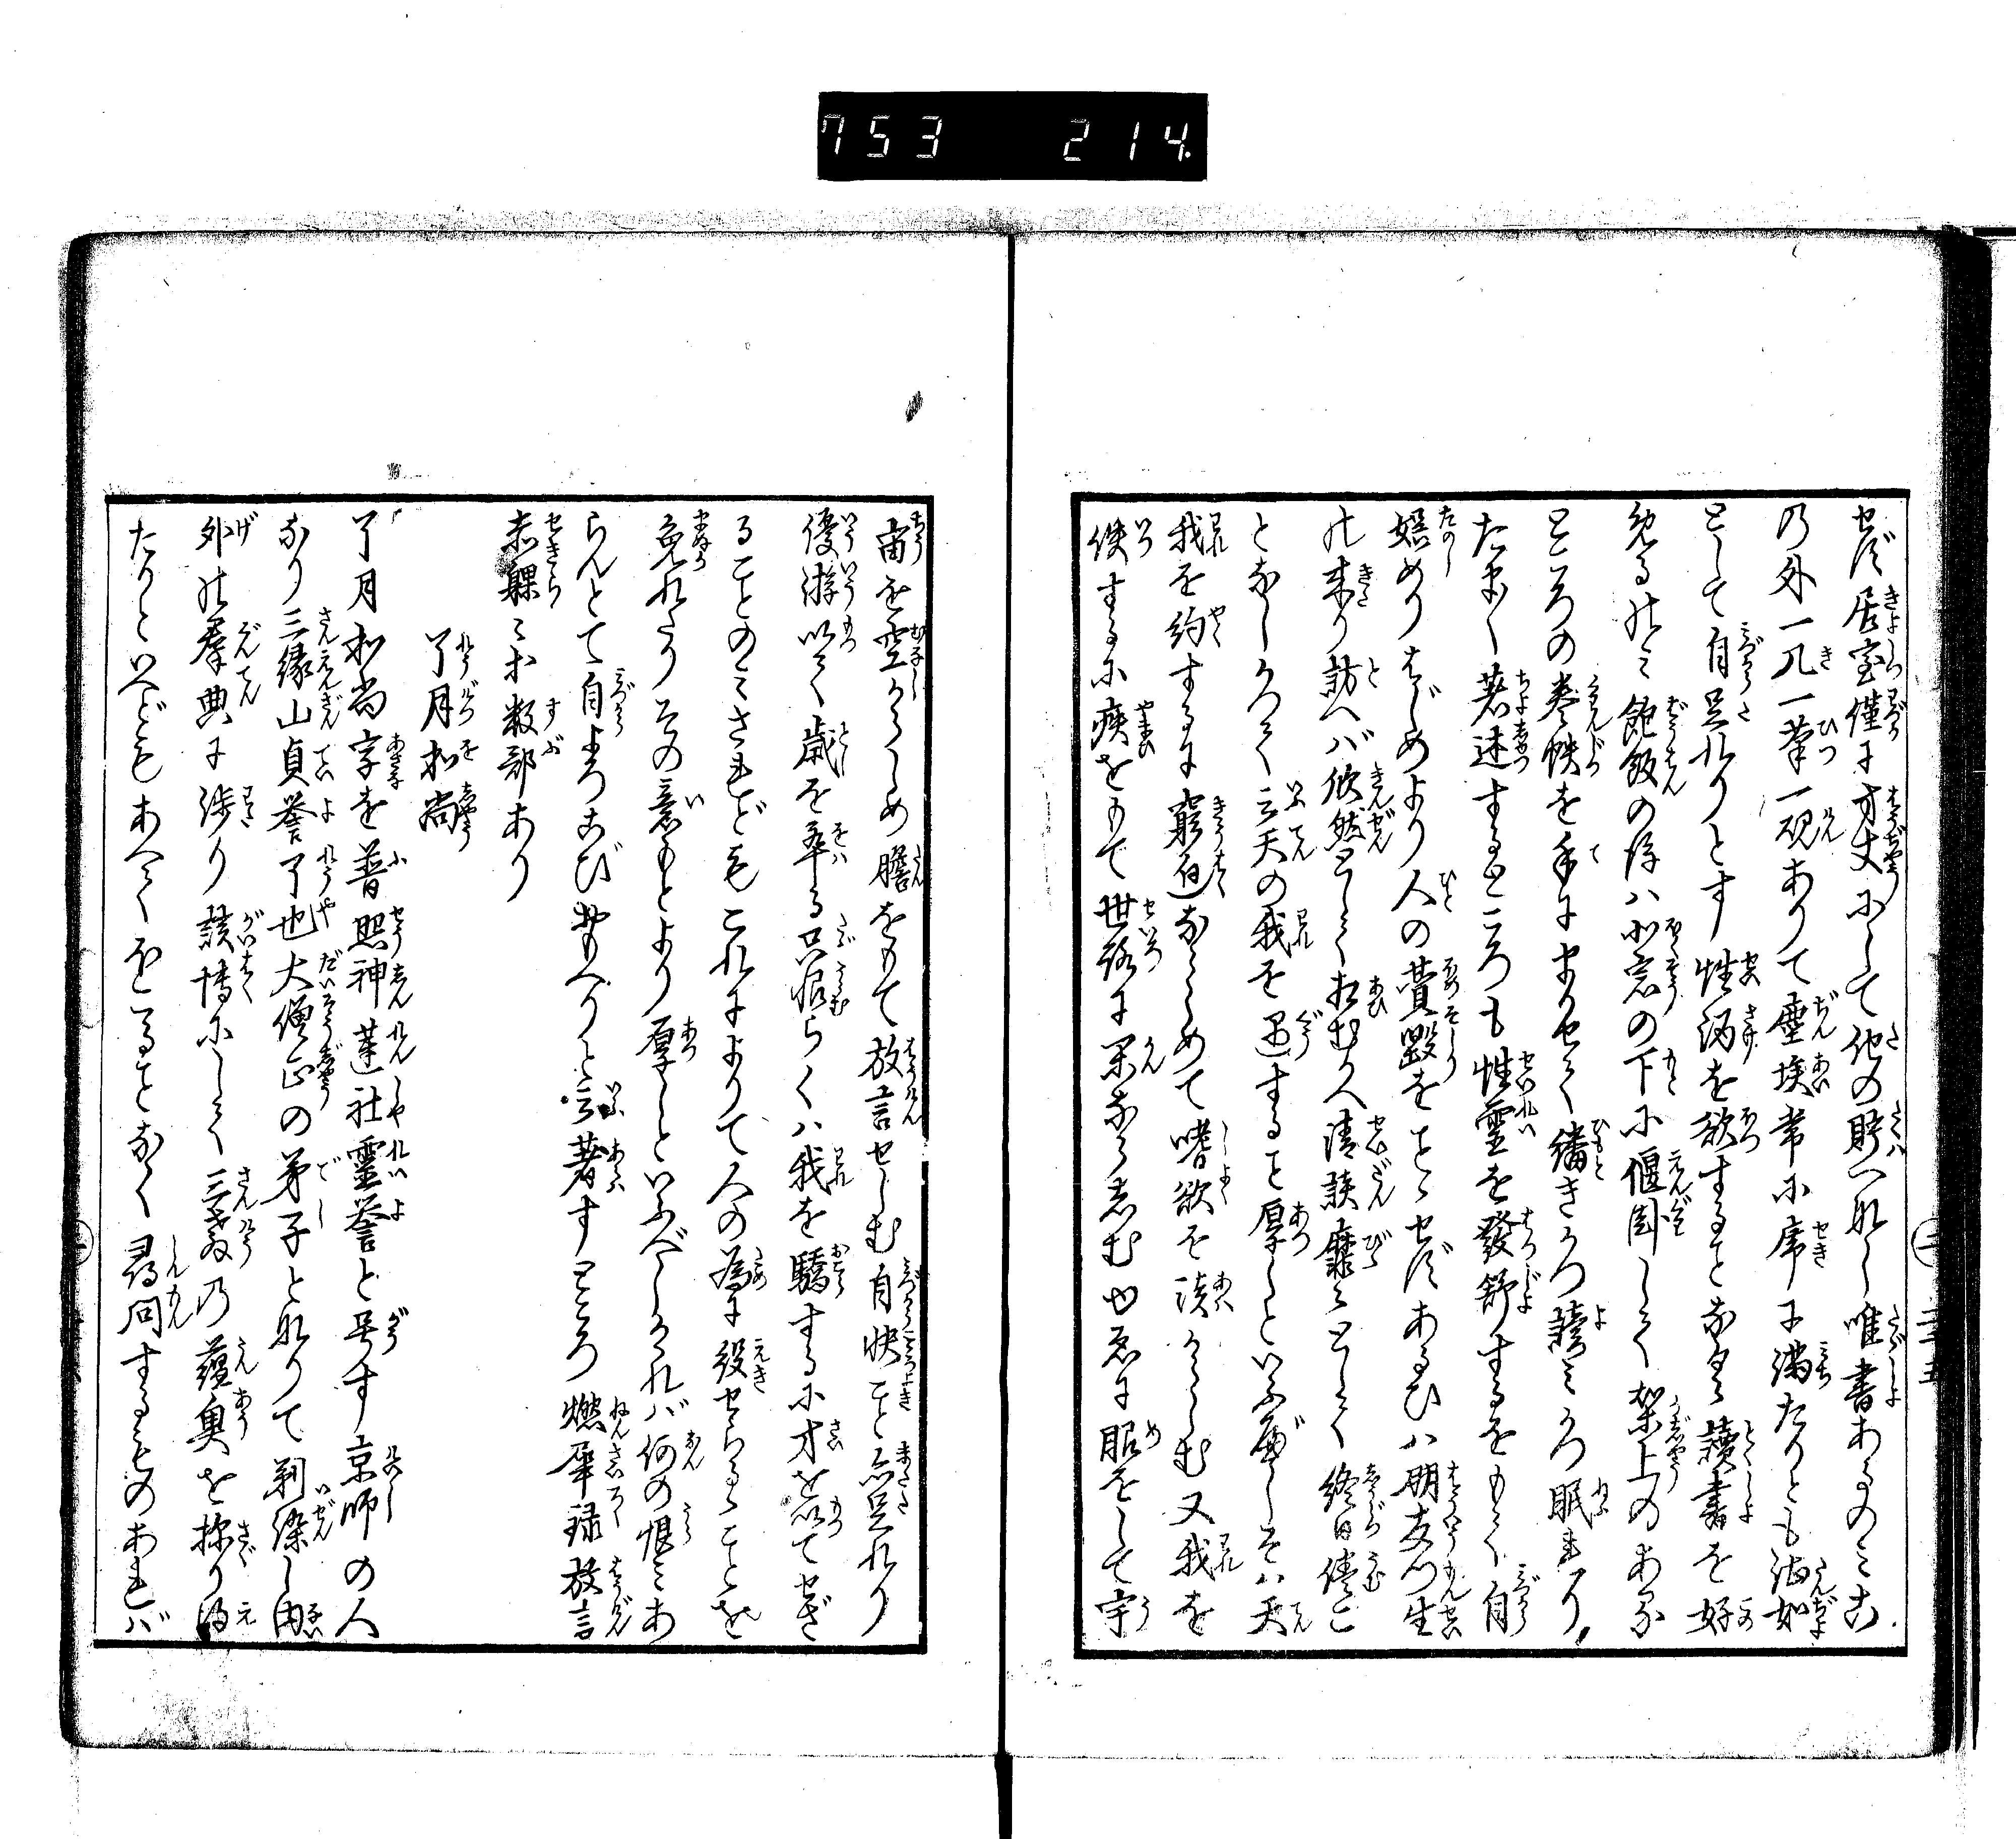 753 214.
せず居室僅に方丈にして他の貯へなし唯書あるのみこ
の外一几一筆一硯ありて塵埃常に席に満たりとも海如
として自足れりとす性酒を欲することなけれ讀書を好
めるのミ飽飯の後ハ北窓の下に偃臥して架上のある
ところの巻帙を手にまかせて繙きかつ讀ミかつ眠れり
たま〳〵著述するところも性靈を發舒するをもて自
娯めりはじめより人の賛毀をことゝせずあるひハ朋友門生
の来り訪へバ欣然として相むかへ清談靡々として終日倦こ
となしかつて云天の我を遇すること厚しといふべしそハ天
我を約するに窮迫ならしめて嗜欲を淡からしむ又我を
佚するに疾をもて世路に閑ならしむゆゑに眼をして宇
宙を空からしめ膽をもて放言せしむ自快こと亦足れり
優游以て歳を卒る只恨らくハ我を驕するに才を以てせざ
ることのミされどもこれによりて人の為に役せらるゝことを
免れたりその意もとより厚しといふべしかれバ何の恨ミあ
らんとて自よろこびおもへりと云著すところ燃犀録放言
赤躶々等数部あり
了月和尚
了月和尚字を普照神蓮社靈誉と号す京師の人
なり三縁山貞誉了也大僧正の弟子となりて剃染し内
外の羣典に渉り該博にして三教の蘊奥を探り得
たりといへどもあへてほこることなく尋問するものあれバ